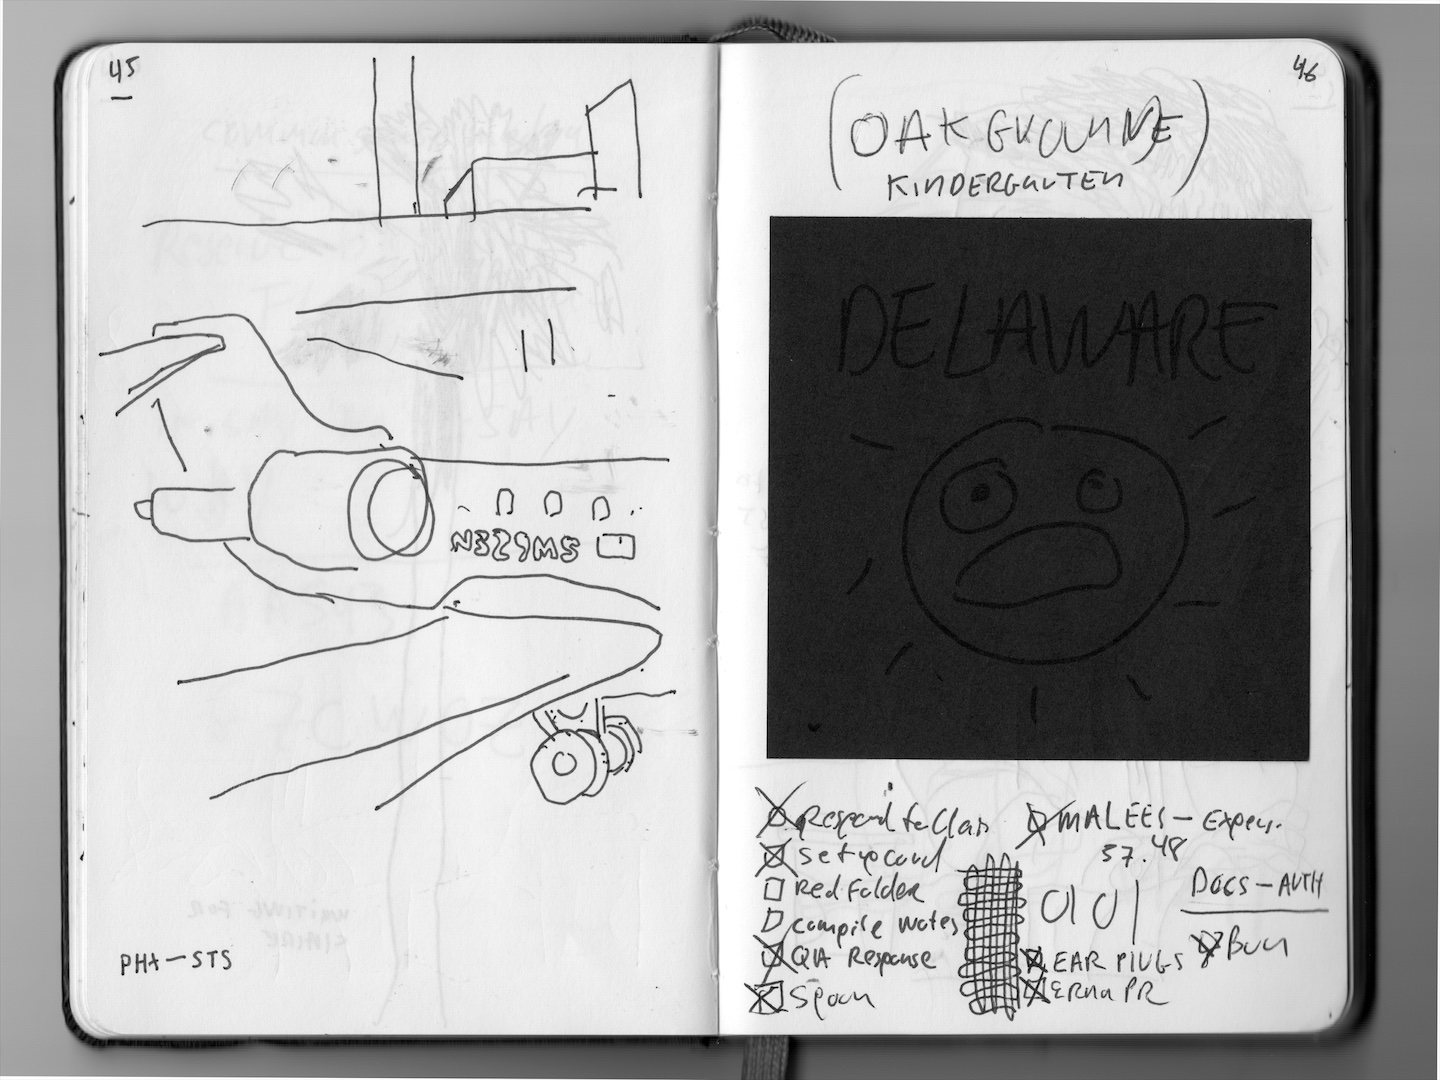 45
N529MS
PHX-STS
46
(OAKGROUNE)
KINDERGARTEN
DELAWARE
Respond to Clan
Set up card
Red Folder
Compile Notes
QIA Response
Spoon
MALEES - Expen.
57.48
DOCS - AUTH
Burn
EAR PLUGS
ERNA PR